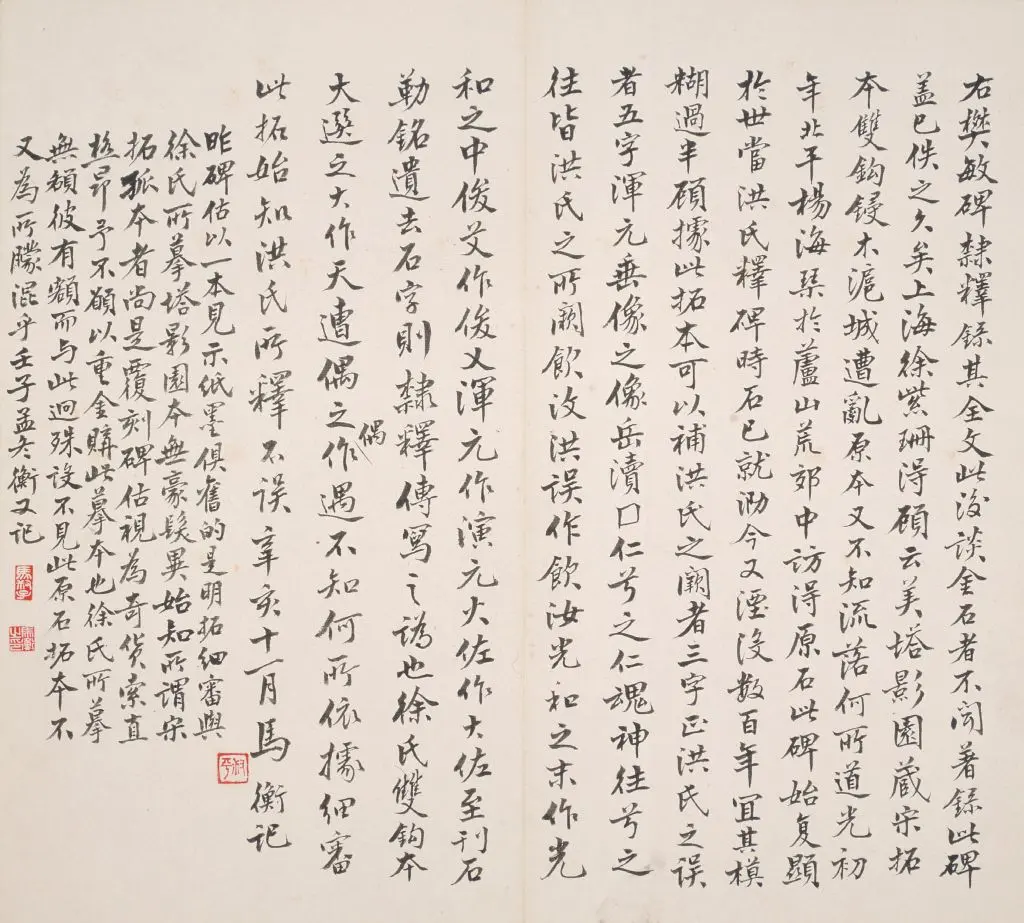 右樊敏碑隸釋錄其全文此後談金石者不聞著錄此碑
蓋已佚之久矣上海徐紫珊得顧云美塔影園蔵宋拓
本雙鈎鋟木滬城遭亂原本又不知流落何所道光初
年北平楊海琹於蘆山荒郊中訪得原石此碑始复顯
於世當洪氏釋碑時石已就泐今又湮沒数百年宜其模
糊過半顧據此拓本可以補洪氏之闕者三字正洪氏之誤
者五字渾元垂像之像岳瀆口仁兮之仁魂神往兮之
往皆洪氏之所闕飲汶洪誤作飲汝光和之末作光
和之中俊艾作俊乂渾元作演元火佐作大佐至刊石
勒銘遺去石字則隸釋傳寫之譌也徐氏雙鈎本
大選之大作天遭偶之偶作遇不知何所依據細審
此拓始知洪氏所釋不誤辛亥十一月馬衡記
昨碑估以一本見示紙墨俱舊的是明拓細審與
徐氏所摹塔影園本無豪髮異始知所謂宋
拓孤本者尚是覆刻碑估視為奇貨索直
極昂予不願以重金購此摹本也徐氏所摹
無額彼有額而与此迥殊設不見此原石拓本不
又為所朦混乎壬子孟冬衡又記
叔平